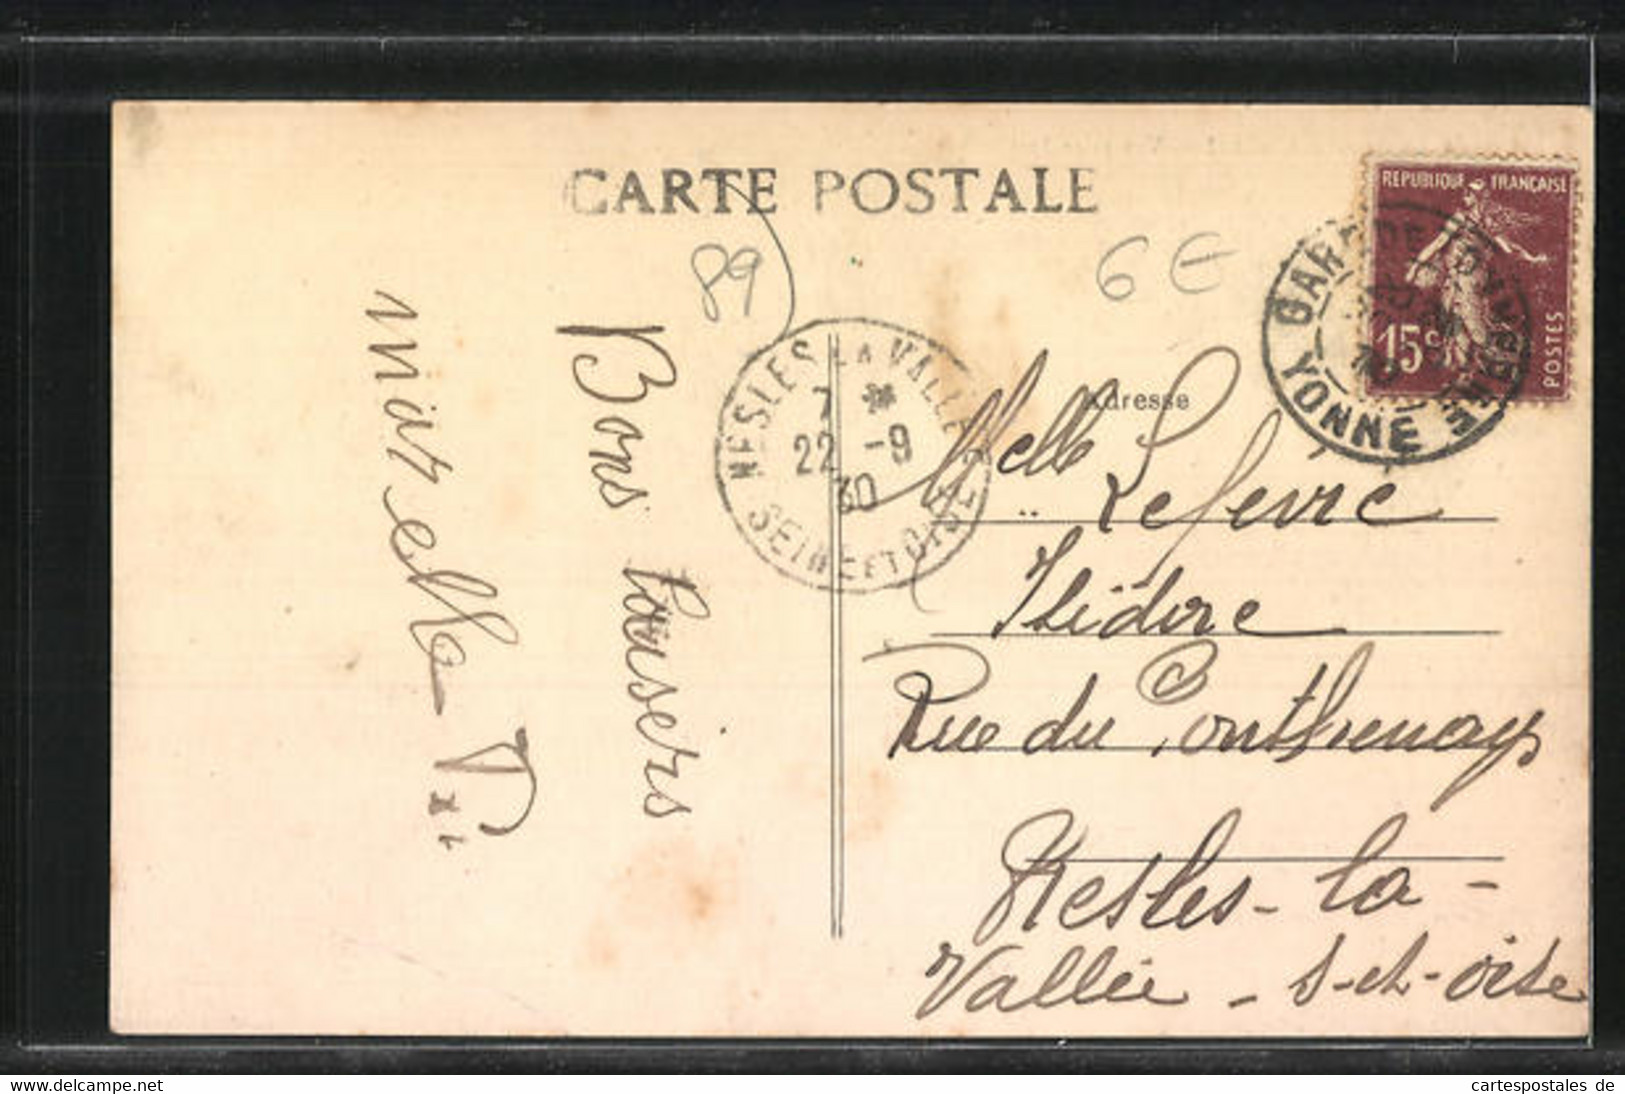 CARTE POSTALE
REPUBLIQUE FRANÇAISE
15c
POSTES
GARE DE
YONNE
89
6 €
NESLES LA VALLÉE
7 *
22 -9
30
SEINE ET OISE
Adresse
Melle Lefevre
Isidore
Rue du Ponthenay
Nesles-la-
Vallée - S-et-Oise
Bons baisers
Marcelle
cartespostales de